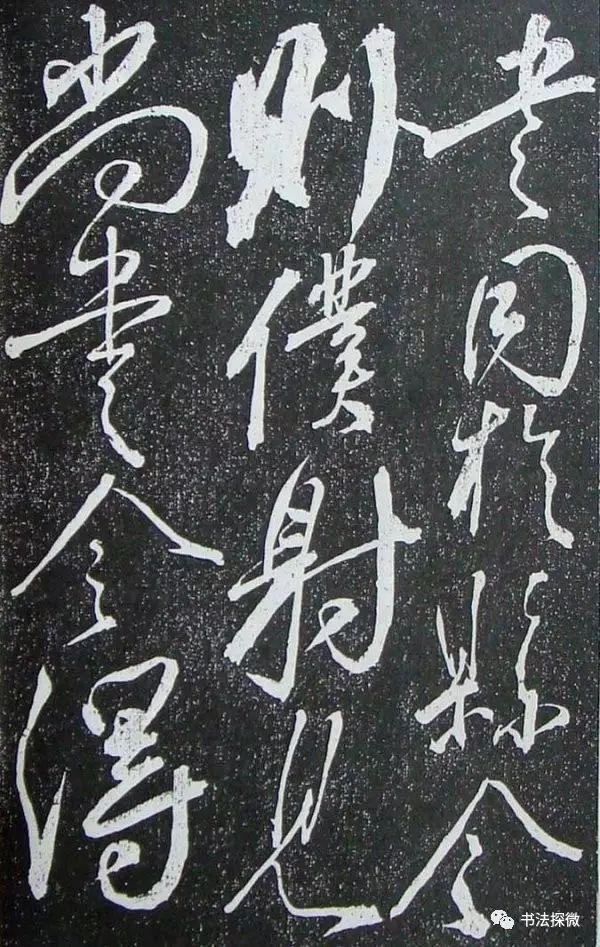 書同於縣令
則僕射見
尚書令得
书法探微